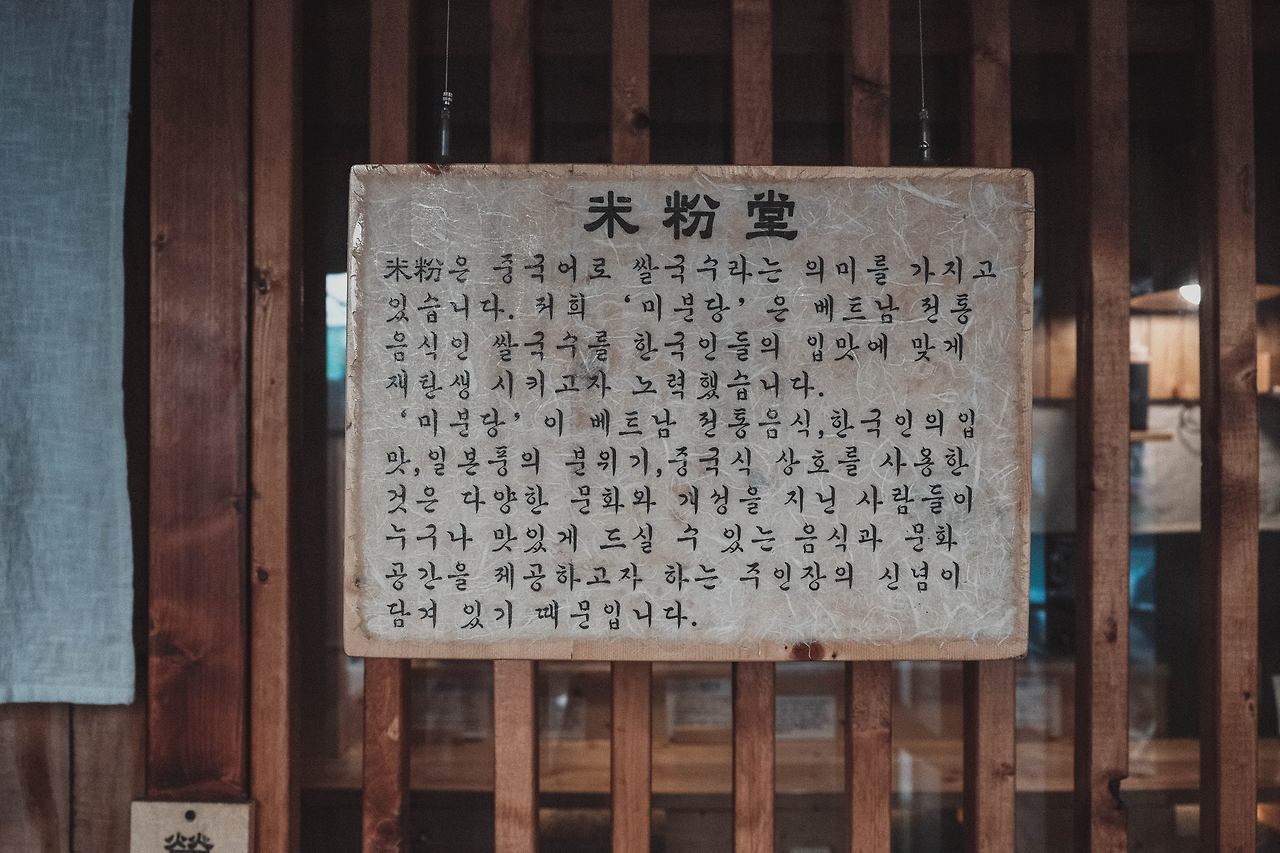 米粉堂
米粉은 중국어로 쌀국수라는 의미를 가지고
있습니다. 저희 ‘미분당’ 은 베트남 전통
음식인 쌀국수를 한국인들의 입맛에 맞게
재탄생 시키고자 노력했습니다.
‘미분당’ 이 베트남 전통음식,한국인의 입
맛,일본풍의 분위기,중국식 상호를 사용한
것은 다양한 문화와 개성을 지닌 사람들이
누구나 맛있게 드실 수 있는 음식과 문화
공간을 제공하고자 하는 주인장의 신념이
담겨 있기 때문입니다.